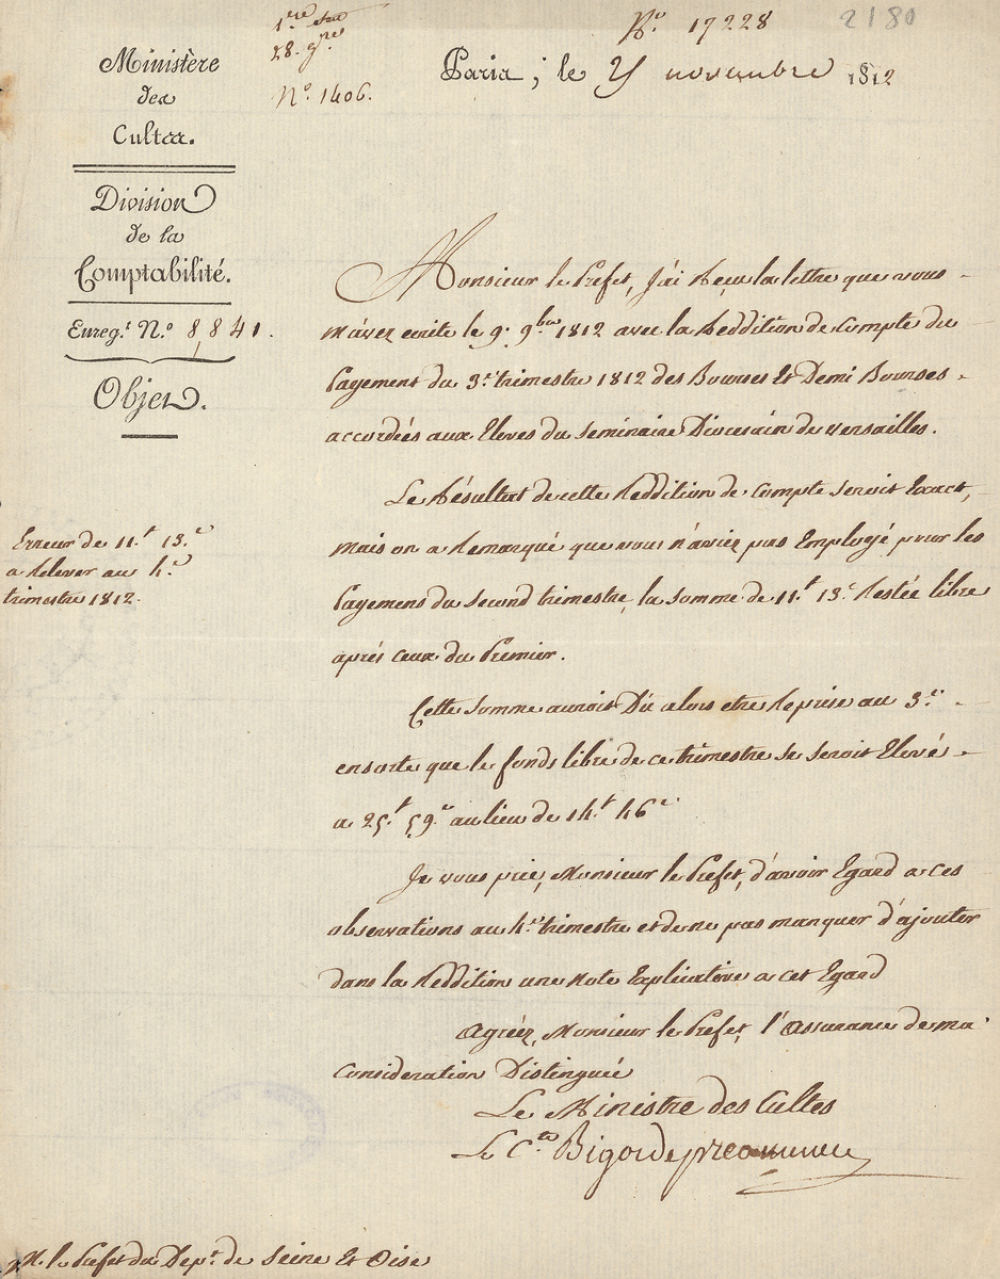 N.° 17228
2180
28. 9bre
N.° 1406.
Paris, le 25 novembre 1812
Ministère
des
Cultes.
Division
de la
Comptabilité.
Enreg.t N.° 8,841.
Objet.
Erreur de 11.f 13.c
a relever au 4.e
trimestre 1812.
Monsieur le Préfet, J'ai Reçu la lettre que vous
m'avez ecrite le 9. 9bre 1812 avec la Reddition de Compte du
Payement du 3.e trimestre 1812 des Bourses Et Demi Bourses
accordées aux Eleves du Seminaire Diocesain de versailles.
Le Résultat de cette Reddition de Compte seroit Exact,
mais on a Remarqué que vous n'aviez pas Employé pour les
Payemens du Second trimestre, la Somme de 11.f 13.c Restée libre
après ceux du Premier.
Cette Somme auroit Dû alors etre Reprise au 3.e
ensorte que le fonds libre de ce trimestre se seroit Elevé
a 25.f 59.c au lieu de 14.f 46.c
Je vous prie, Monsieur le Préfet, d'avoir Egard a ces
observations au 4.e trimestre et de ne pas manquer d'ajouter
dans la Reddition une Note Explicative a cet Egard
Agréez, Monsieur le Préfet, l'Assurance de ma
Consideration Distinguée
Le Ministre des Cultes
Le C.te Bigot de préameneu
M. le Préfet du Dep.t de Seine Et Oise